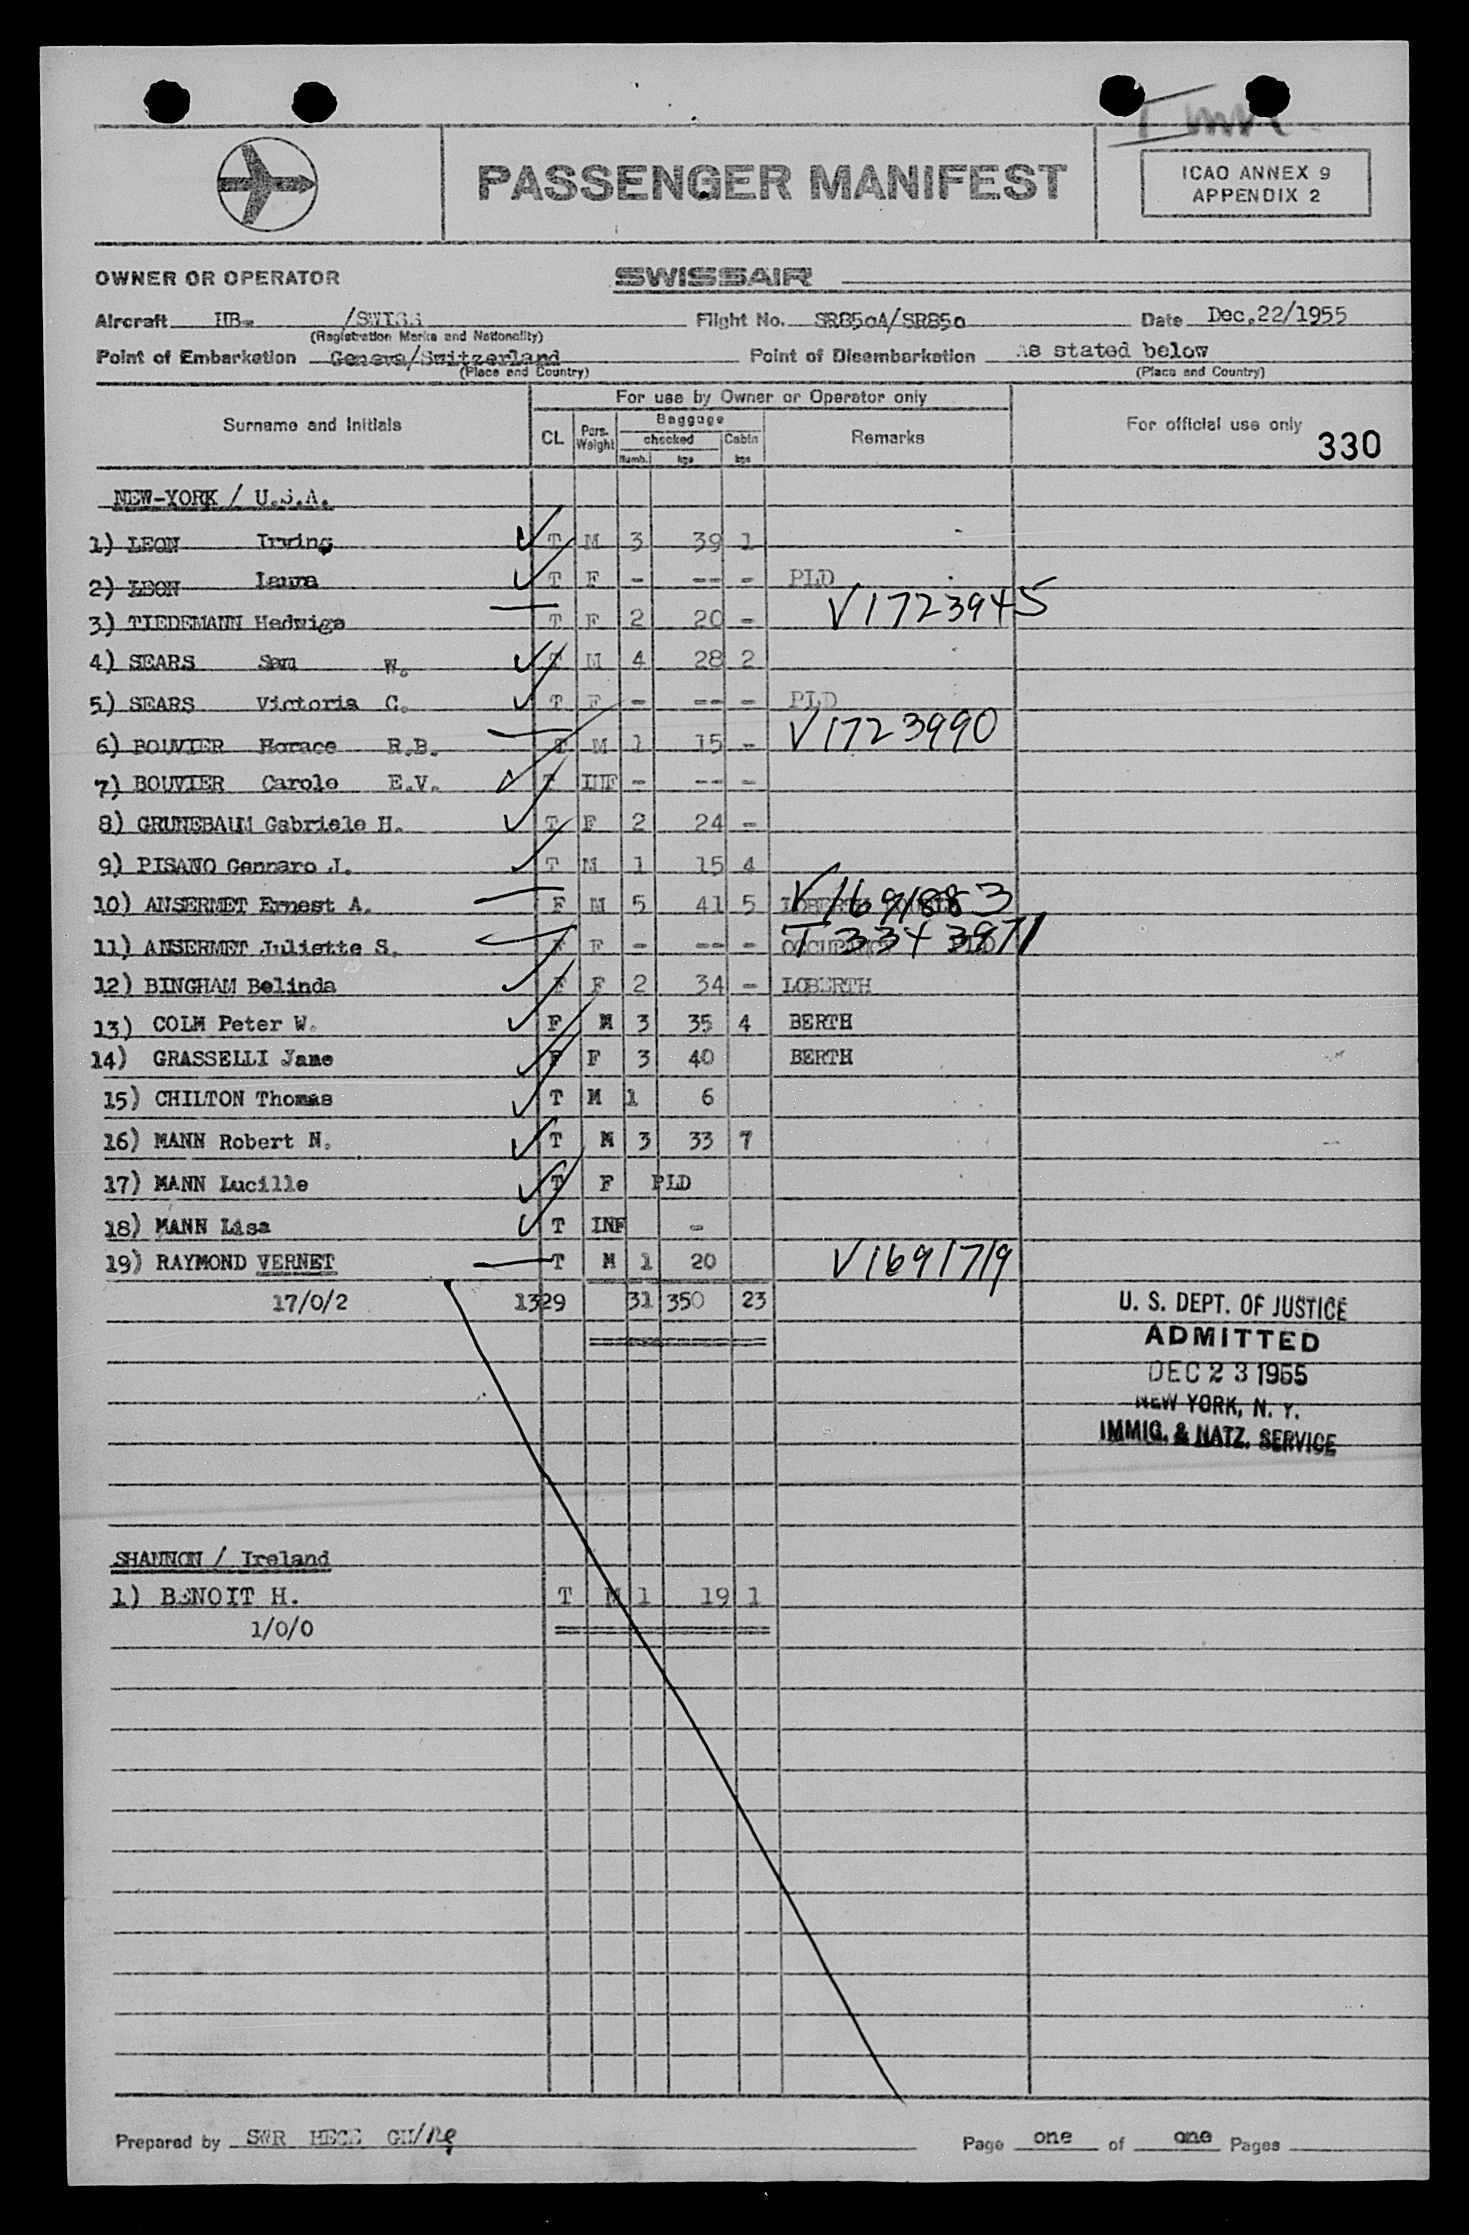 Imm
PASSENGER MANIFEST
ICAO ANNEX 9
APPENDIX 2
OWNER OR OPERATOR SWISSAIR
Aircraft HB- /SWISS Flight No. SR850A/SR850 Date Dec.22/1955
(Registration Marks and Nationality)
Point of Embarkation Geneva/Switzerland Point of Disembarkation As stated below
(Place and Country) (Place and Country)
Surname and Initials For use by Owner or Operator only For official use only
CL Pers. Weight Baggage Remarks 330
checked Cabin
Numb. kgs kgs
NEW-YORK / U.S.A.
1) LEON Irving T M 3 39 1
2) LEON Laura T F - -- - PLD
3) TIEDEMANN Hedwiga T F 2 20 - V1723945
4) SEARS Sam W. T M 4 28 2
5) SEARS Victoria C. T F - -- - PLD
6) BOUVIER Horace R.B. T M 1 15 - V1723990
7) BOUVIER Carole E.V. T INF - -- -
8) GRUNEBAUM Gabriele H. T F 2 24 -
9) PISANO Gennaro J. T M 1 15 4
10) ANSERMET Ernest A. F M 5 41 5 LOBERTH V1691883
11) ANSERMET Juliette S. F F - -- - OCCUPANCY PLD T3343971
12) BINGHAM Belinda F F 2 34 - LOBERTH
13) COLM Peter W. F M 3 35 4 BERTH
14) GRASSELLI Jane F F 3 40 BERTH
15) CHILTON Thomas T M 1 6
16) MANN Robert N. T M 3 33 7
17) MANN Lucille T F PLD
18) MANN Lisa T INF -
19) RAYMOND VERNET T M 1 20 V1691719
17/0/2 1329 31 350 23
U. S. DEPT. OF JUSTICE
ADMITTED
DEC 23 1955
NEW YORK, N. Y.
IMMIG. & NATZ. SERVICE
SHANNON / Ireland
1) BENOIT H. T M 1 19 1
1/0/0
Prepared by SWR HECE GH/ Page one of one Pages